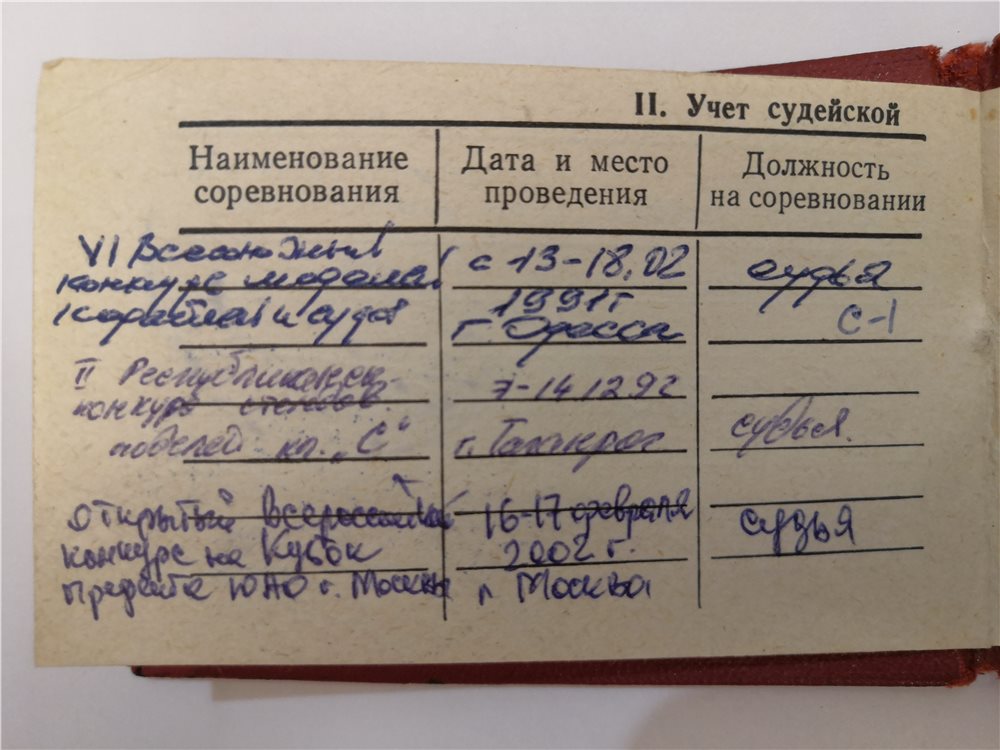 II. Учет судейской
Наименование соревнования
Дата и место проведения
Должность на соревновании
VI Всесоюзный
конкурс моделей
кораблей и судов
с 13-18.02
1991г
г. Одесса
судья
С-1
II Республиканск
конкурс стендов.
моделей кл. „С"
7-14.12.92
г. Таганрог
судья.
Открытый Всероссийский
конкурс на Кубок
префекта ЮАО г. Москвы
16-17 февраля
2002 г.
г Москва
судья